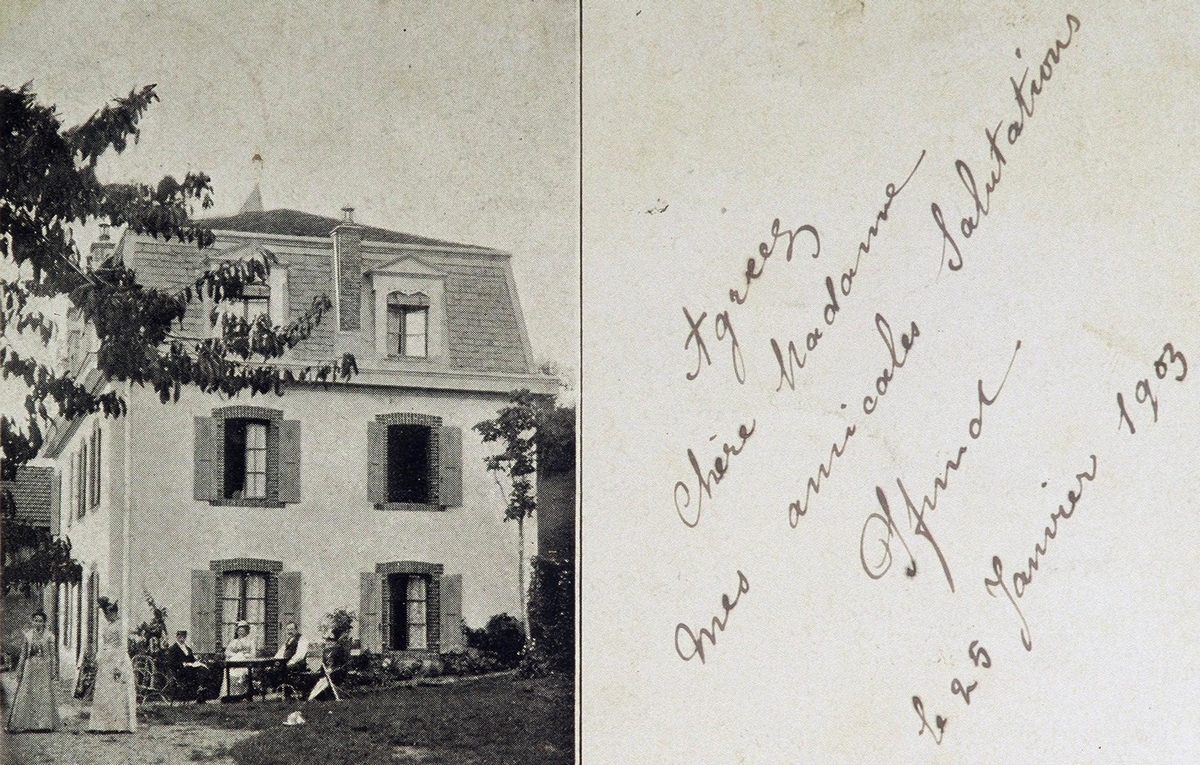 Agréez
Chère Madame
mes amicales Salutations
le 25 Janvier 1903